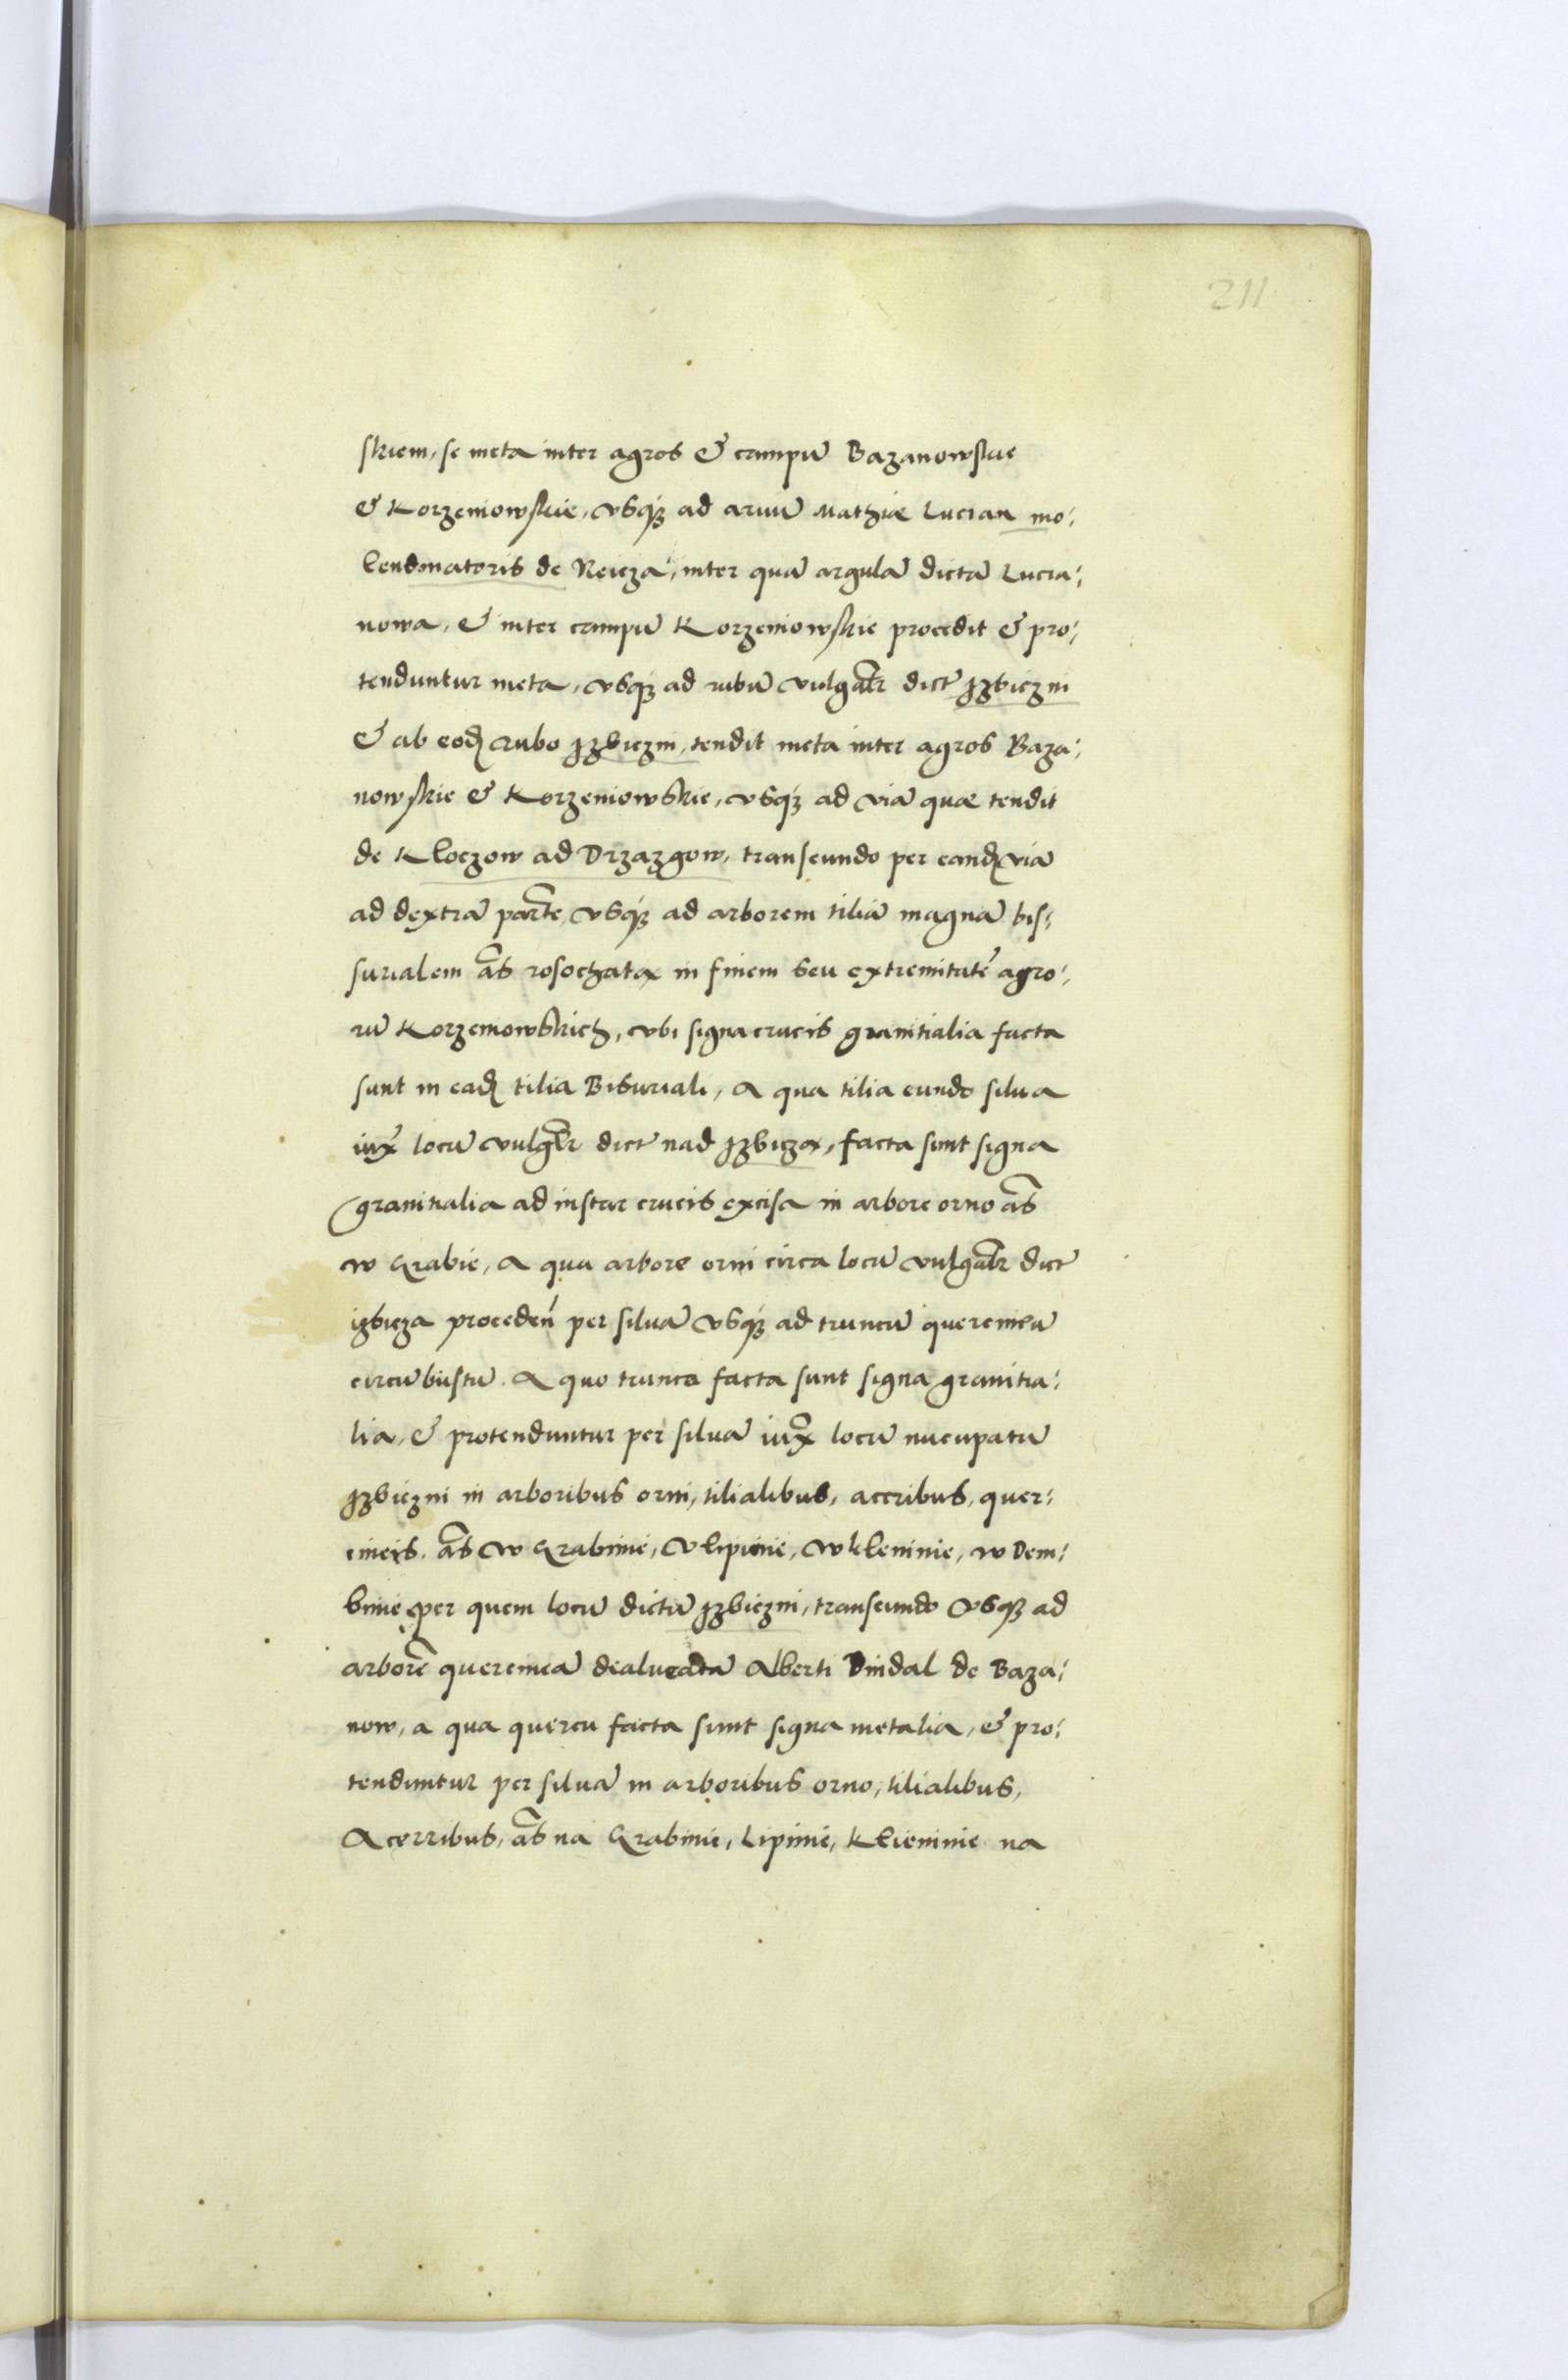 211
skiem, se meta inter agros & campũ Bazanowskie
& Korzeniowskie, vsq́ꝫ ad aruũ Mathiæ Lucran mo⸗
lendinatoris de Neicza, inter quã argulã dictã Lucra⸗
nowa, & inter campũ Korzeniowskie procedit & pro⸗
tenduntur meta, vsqꝫ ad rubũ vulgatr̃ dict̃ Jzbiczni
& ab eodẽ rubo Jzbiczni, tendit meta inter agros Baza⸗
nowskie & Korzeniowskie, vsq́ꝫ ad viã quæ tendit
de Kloczow ad Drzazgow, transeundo per eandẽ viã
ad dextrã partẽ, vsq́ꝫ ad arborem tiliã magnã bis⸗
surialem al̃s rosochata in finem seu extremitatẽ agro⸗
rũ Korzeniowskich, vbi signa crucis granitialia facta
sunt in eadẽ tilia Bisuriali, A qua tilia eundo silua
iux̃ locũ vulgr̃ dict̃ nad Jzbicza, facta sunt signa
granitialia ad instar crucis excisa in arbore orno al̃s
w Grabie, A qua arbore orni circa locũ vulgatr̃ dict̃
izbicza proceden̄ per siluã vsq́ꝫ ad truncũ quercineũ
circũbustũ. A quo trunco facta sunt signa granitia⸗
lia, & protenduntur per siluã iux̃ locũ nucupatũ
Jzbiczni in arboribus orni, tilialibus, aceribus, quer⸗
cineis. al̃s w Grabinie, v lipinie, w kleninie, w Dem⸗
binie, per quem locũ dictũ Jzbiczni, transeundo vsqꝫ ad
arborẽ quercineã dealueatã Alberti Dindal de Baza⸗
now, a qua quercu facta sunt signa metalia, & pro⸗
tenduntur per siluã in arboribus orno, tilialibus,
Acerribus, al̃s na Grabinie, Lipinie, Klieninie na